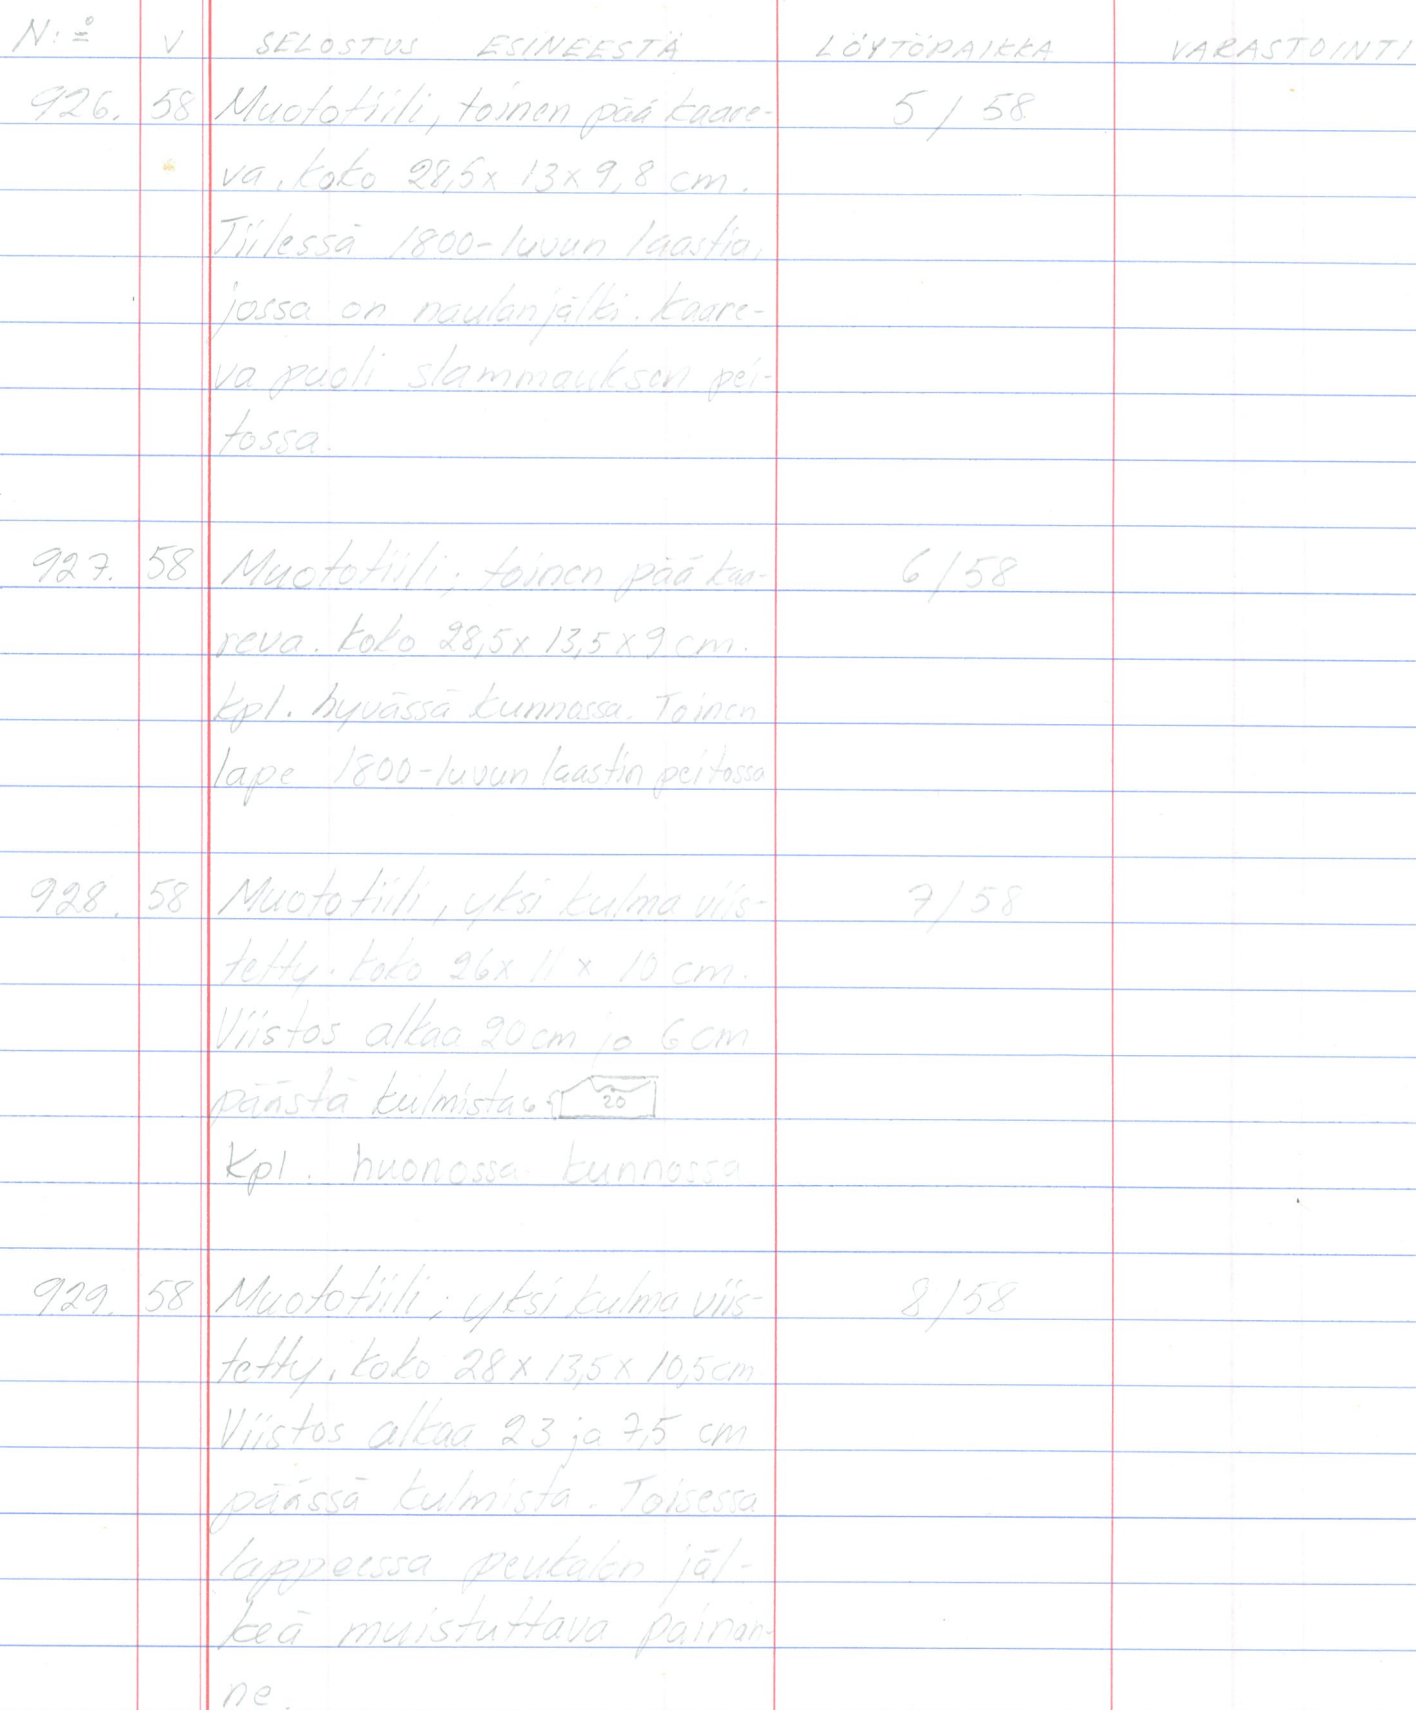 N:o V SELOSTUS ESINEESTÄ LÖYTÖPAIKKA VARASTOINTI
926. 58 Muototiili, toinen pää kaare- 5/58
va. koko 28,5x 13x9,8 cm.
Tiilessä 1800-luvun laastia,
jossa on naulanjälki. kaare-
va puoli slammauksen pei-
tossa.
927. 58 Muototiili; toinen pää kaa- 6/58
reva. koko 28,5x 13,5x9 cm.
kpl. hyvässä kunnossa. Toinen
lape 1800-luvun laastin peitossa
928. 58 Muototiili, yksi kulma viis- 7/58
tetty. koko 26x 11 x 10 cm.
Viistos alkaa 20cm ja 6cm
päästä kulmista 6 20
Kpl. huonossa kunnossa
929. 58 Muototiili; yksi kulma viis- 8/58
tetty. koko 28x 13,5x 10,5cm
Viistos alkaa 23 ja 7,5 cm
päässä kulmista. Toisessa
lappeessa peukalon jäl-
keä muistuttava painan-
ne.